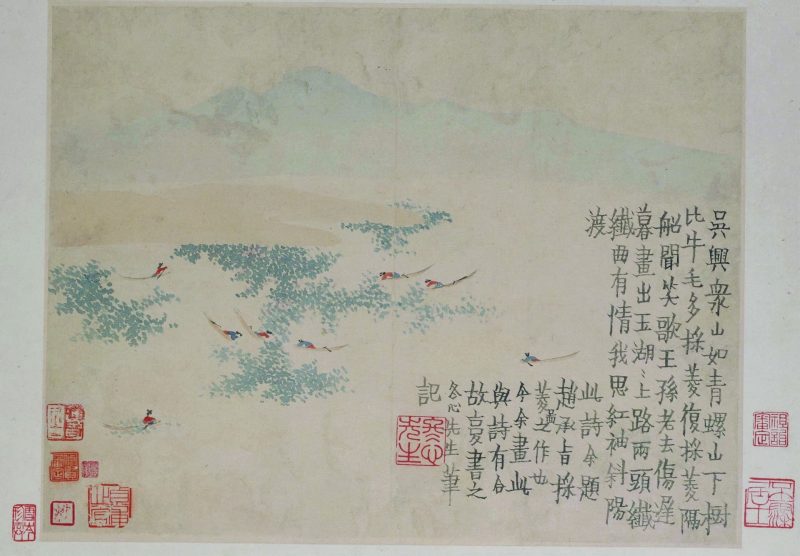 吳興眾山如青螺山下樹
比牛毛多採菱復採菱隔
船聞笑歌王孫老去傷遲
暮畫出玉湖〻上路兩頭纖
纖曲有情我思紅袖斜陽
渡
此詩余題
趙承旨採
菱畫之作也
今余畫此
與詩有合
故复書之
冬心先生筆
記
冬心
先生